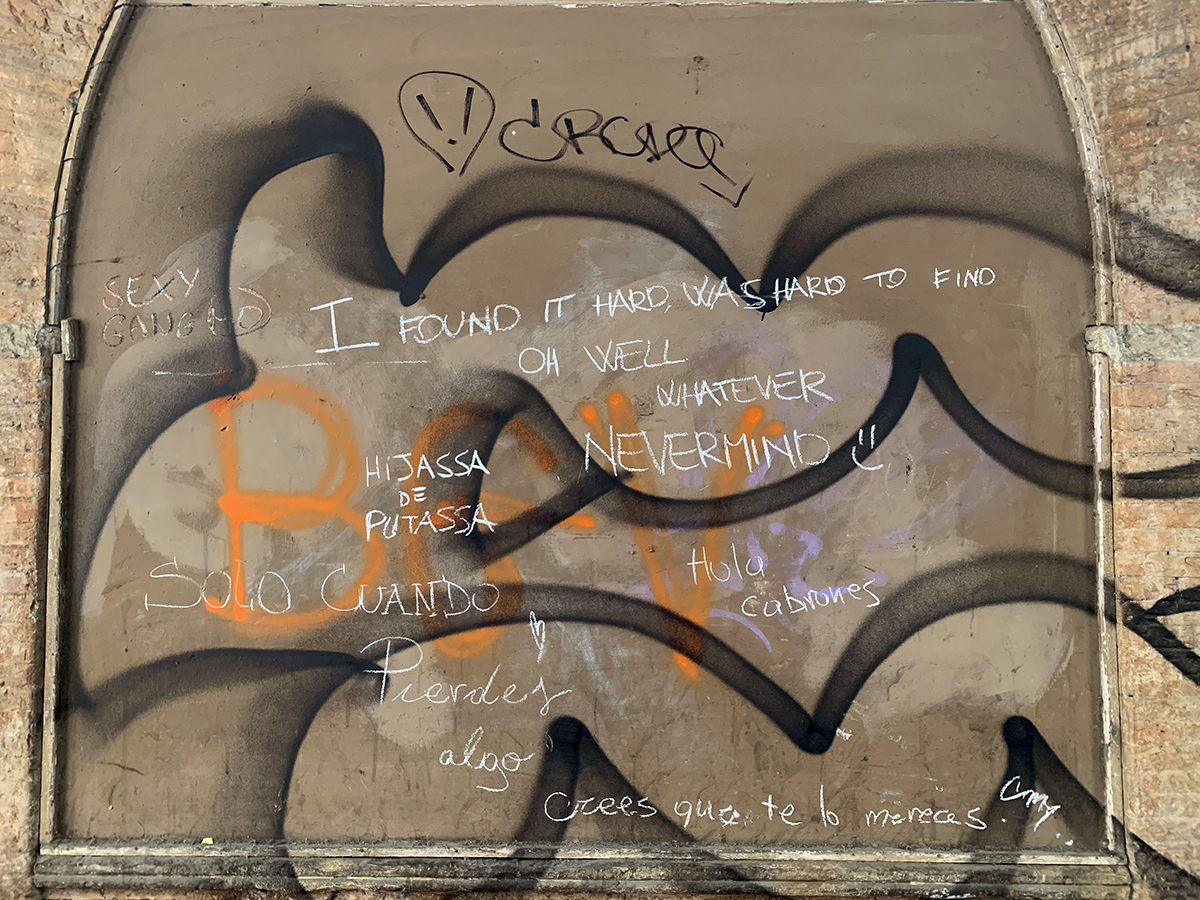 SEXY
GANG
I FOUND IT HARD, WAS HARD TO FIND
OH WELL
WHATEVER
NEVERMIND
HIJASSA
DE
PUTASSA
Hola
cabrones
SOLO CUANDO
Pierdes
algo
crees que te lo mereces.